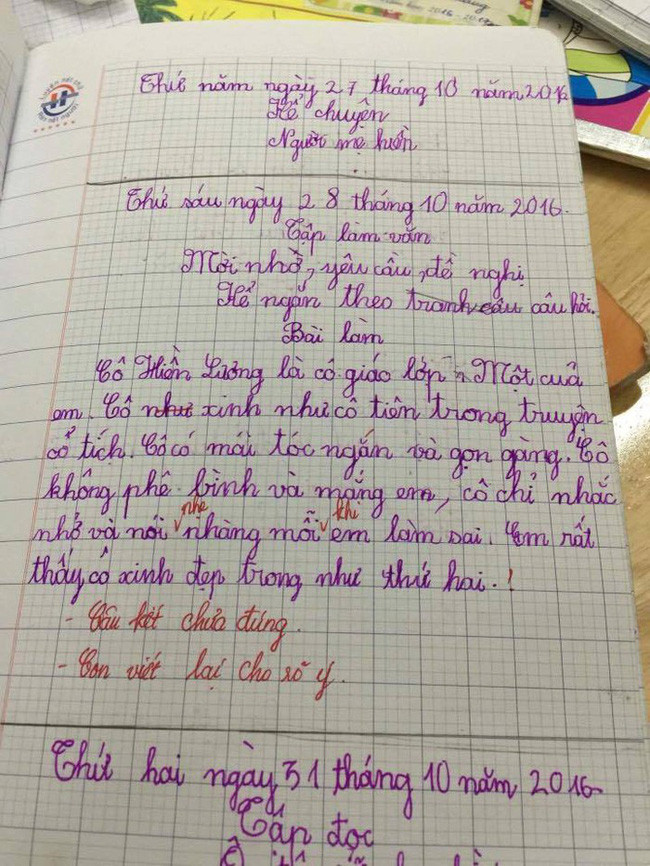 2016-2017
Thứ năm ngày 27 tháng 10 năm 2016
Kể chuyện
Người mẹ hiền
Thứ sáu ngày 28 tháng 10 năm 2016.
Tập làm văn
Mời nhờ, yêu cầu, đề nghị
Kể ngắn theo tranh câu câu hỏi.
Bài làm
Cô Hiền Lương là cô giáo lớp Một cuả
em. Cô như xinh như cô tiên trong truyện
cổ tích. Cô có mái tóc ngắn và gọn gàng. Cô
không phê bình và mắng em, cô chỉ nhắc
nhở và nói nhẹ nhàng mỗi khi em làm sai. Em rất
thấy cô xinh đẹp trong như thứ hai. !
- Câu kết chưa đúng.
- Con viết lại cho rõ ý.
Thứ hai ngày 31 tháng 10 năm 2016
Tập đọc